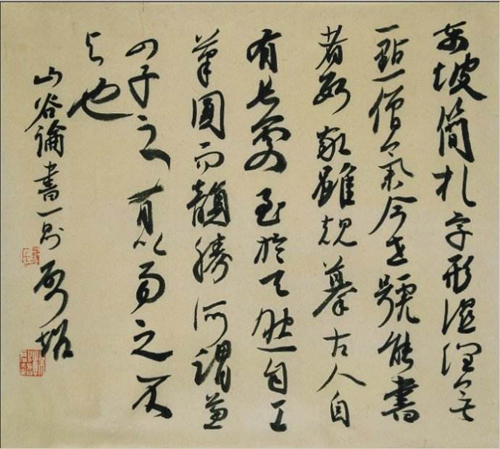 東坡簡札字形溫潤無
一點俗氣今世號能書
者數家雖規摹古人自
有長處至於天然自工
筆圓而韻勝所謂兼
四子之有以易之不
與也
山谷論書一則